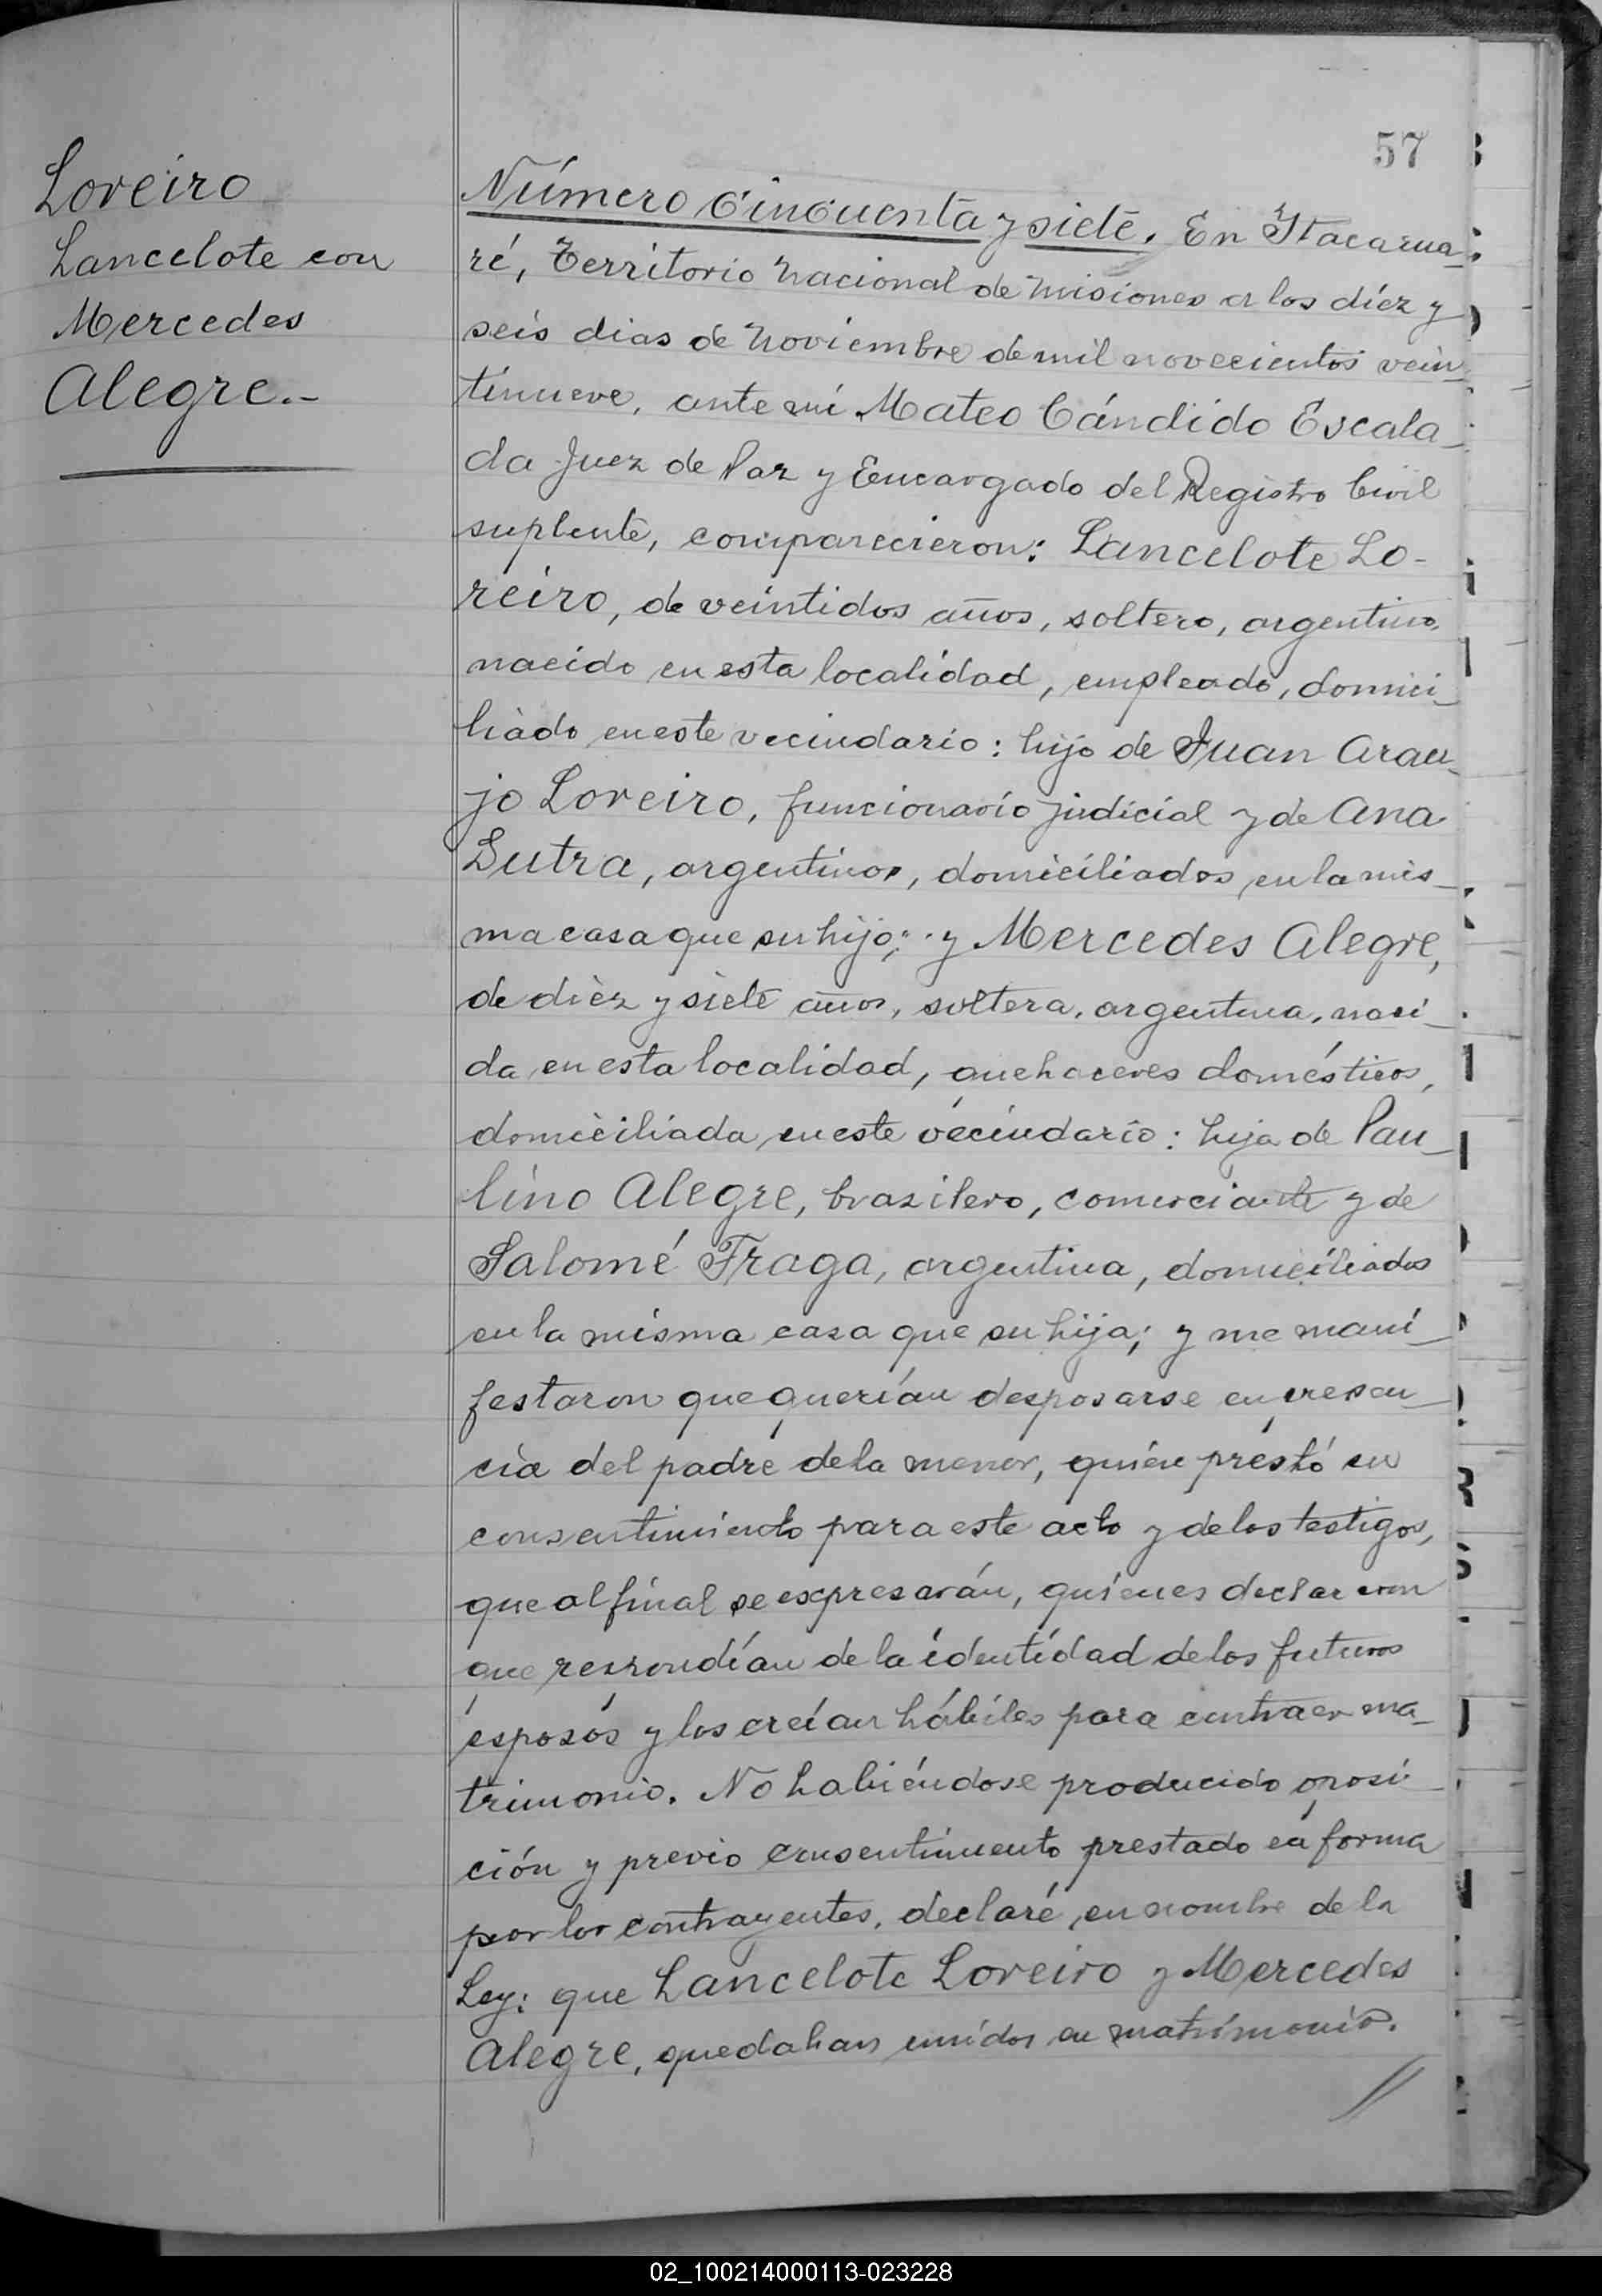 57
Loreiro
Lancelote con
Mercedes
Alegre.-
Número Cincuenta y siete. En Itacarua-
ré, Territorio Nacional de Misiones a los diéz y
seis dias de Noviembre de mil novecientos vein-
tinueve, ante mí Mateo Cándido Escala-
da Juez de Paz y Encargado del Registro Civil
suplente, comparecieron: Lancelote Lo-
reiro, de veintidos años, soltero, argentino,
nacido en esta localidad, empleado, domici-
liado en este vecindario: hijo de Juan Arau-
jo Loreiro, funcionario judicial y de Ana
Dutra, argentinos, domiciliados en la mis-
ma casa que su hijo; y Mercedes Alegre,
de diéz y siete años, soltera, argentina, naci-
da en esta localidad, quehaceres domésticos,
domiciliada en este vecindario: hija de Pau-
lino Alegre, brazilero, comerciante y de
Salomé Fraga, argentina, domiciliados
en la misma casa que su hija; y me mani-
festaron que querían desposarse en presen-
cia del padre de la menor, quién prestó su
consentimiento para este acto y de los testigos,
que al final se expresarán, quienes declararon
que respondían de la identidad de los futuros
esposos y los creían hábiles para contraer ma-
trimonio. No habiéndose producido oposi-
ción y previo consentimiento prestado en forma
por los contrayentes, declaré, en nombre de la
Ley: que Lancelote Loreiro y Mercedes
Alegre, quedaban unidos en matrimonio.
02_100214000113-023228